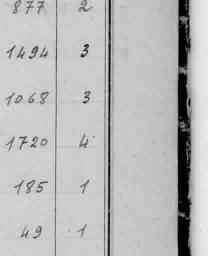 877 2
1494 3
1068 3
1720 4
185 1
49 1